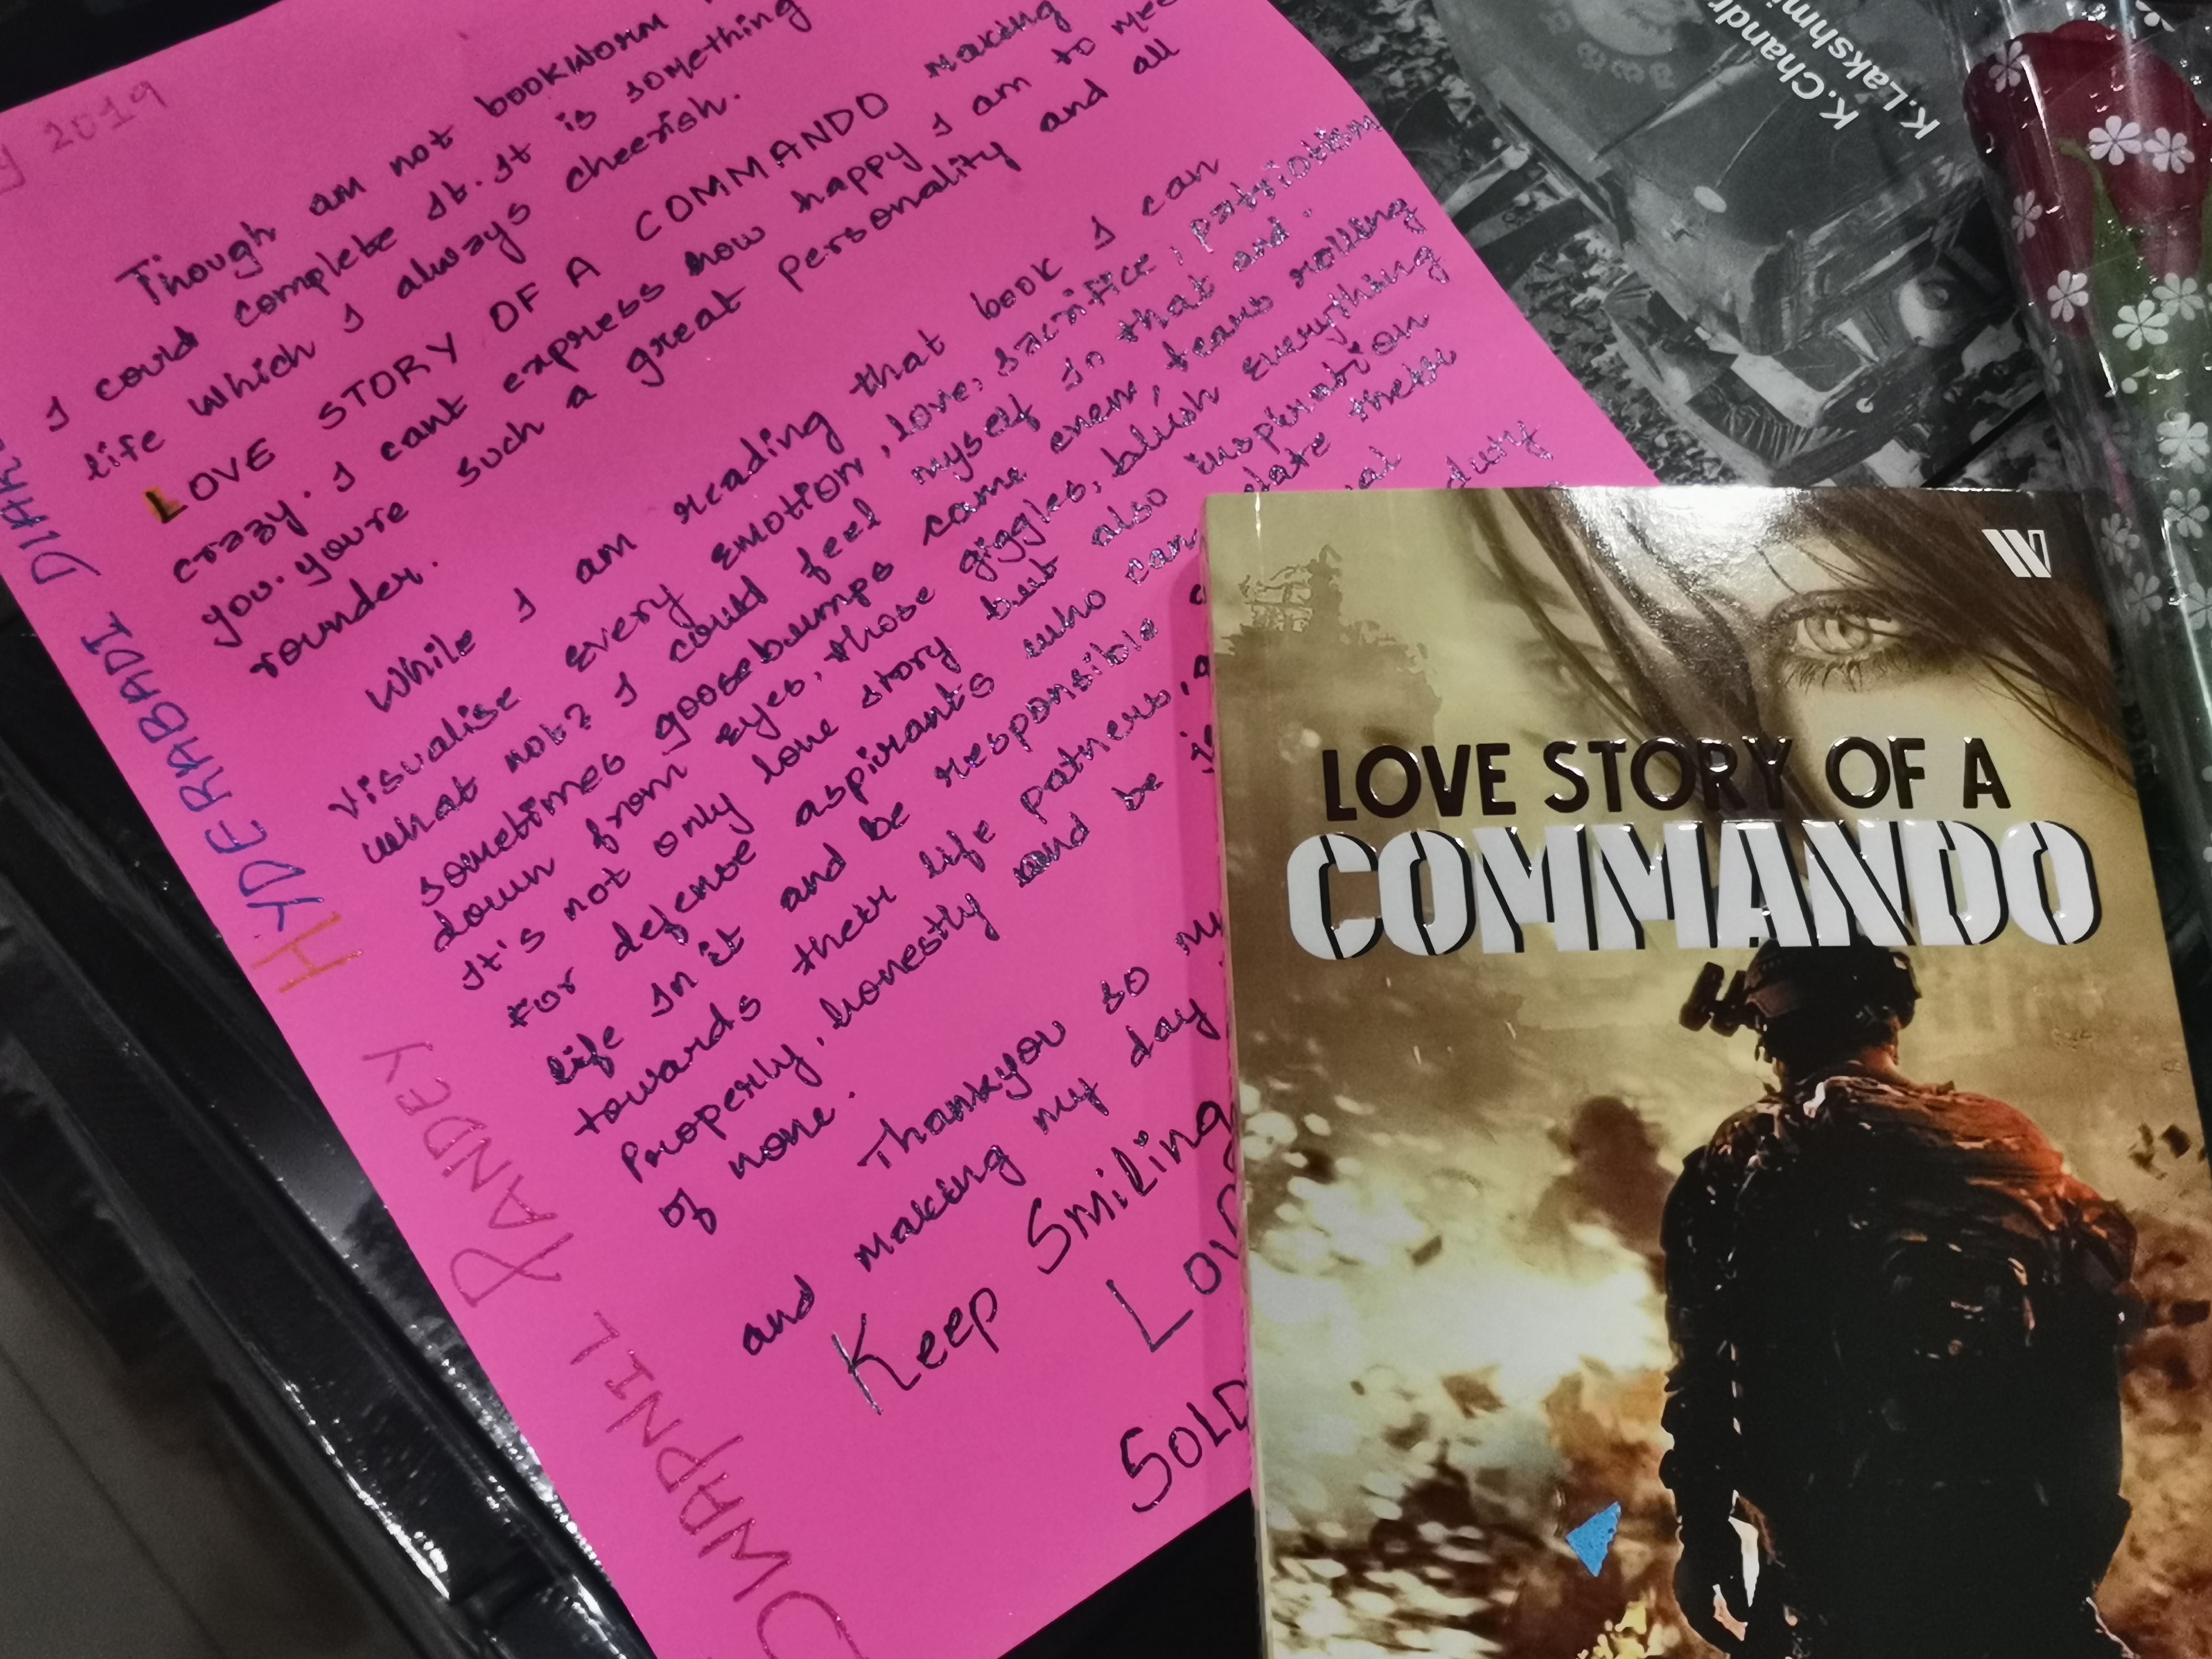 2019
Though am not bookworm
I could complete it. It is something
life which I always cheerish.
LOVE STORY OF A COMMANDO making
crazy. I cant express how happy I am to mee
you. you're such a great personality and all
rounder.
While I am reading that book I can
visualise every emotion, love, sacrifice, patriotism
what not? I could feel myself in that and
sometimes goosebumps came enew, tears rolling
down from eyes, those giggles, blush everything
It's not only love story but also inspiration
for defense aspirants who can late their
life in it and be responsible duty
towards their life patners,
Properly, honestly and be j
of none.
Thankyou so
and making my day
Keep Smiling
Lov
SOLD
HYDERABADI
SWAPNIL PANDEY
K.Chandr
K.Lakshmi
W
LOVE STORY OF A
COMMANDO